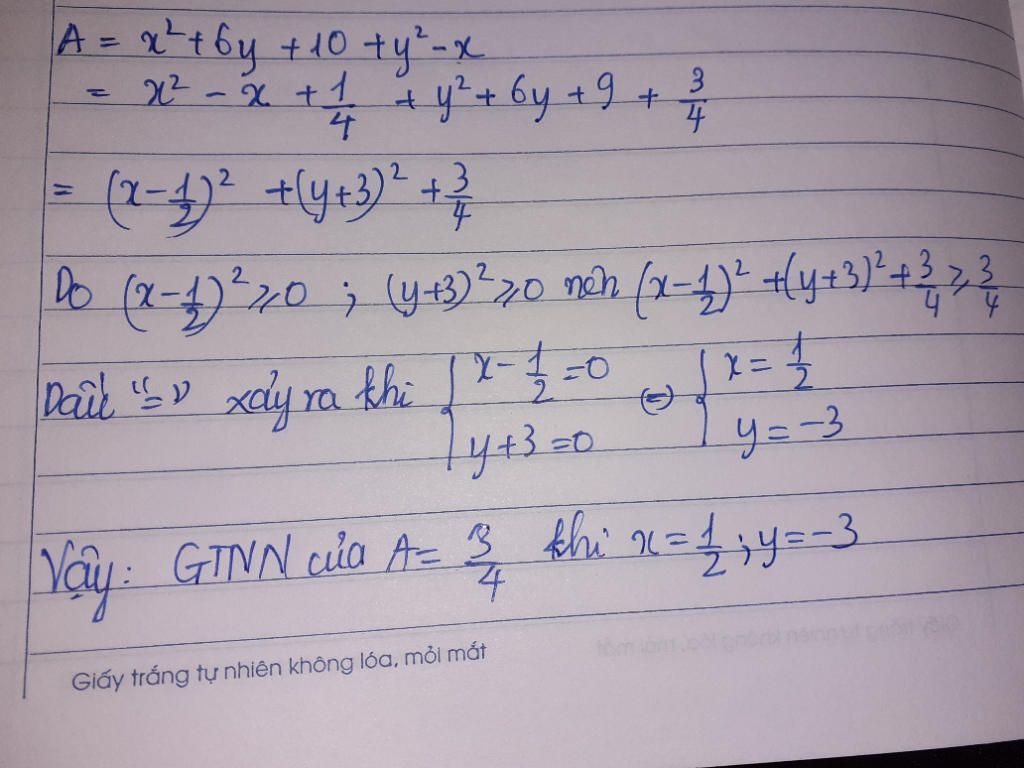 A = x² + 6y + 10 + y² - x
= x² - x + 1/4 + y² + 6y + 9 + 3/4
= (x - 1/2)² + (y+3)² + 3/4
Do (x - 1/2)² ≥ 0 ; (y+3)² ≥ 0 nên (x - 1/2)² + (y+3)² + 3/4 ≥ 3/4
Dấu "=" xảy ra khi { x - 1/2 = 0 ; y + 3 = 0 (=) { x = 1/2 ; y = -3
Vậy: GTNN của A = 3/4 khi x = 1/2 ; y = -3
Giấy trắng tự nhiên không lóa, mỏi mắt